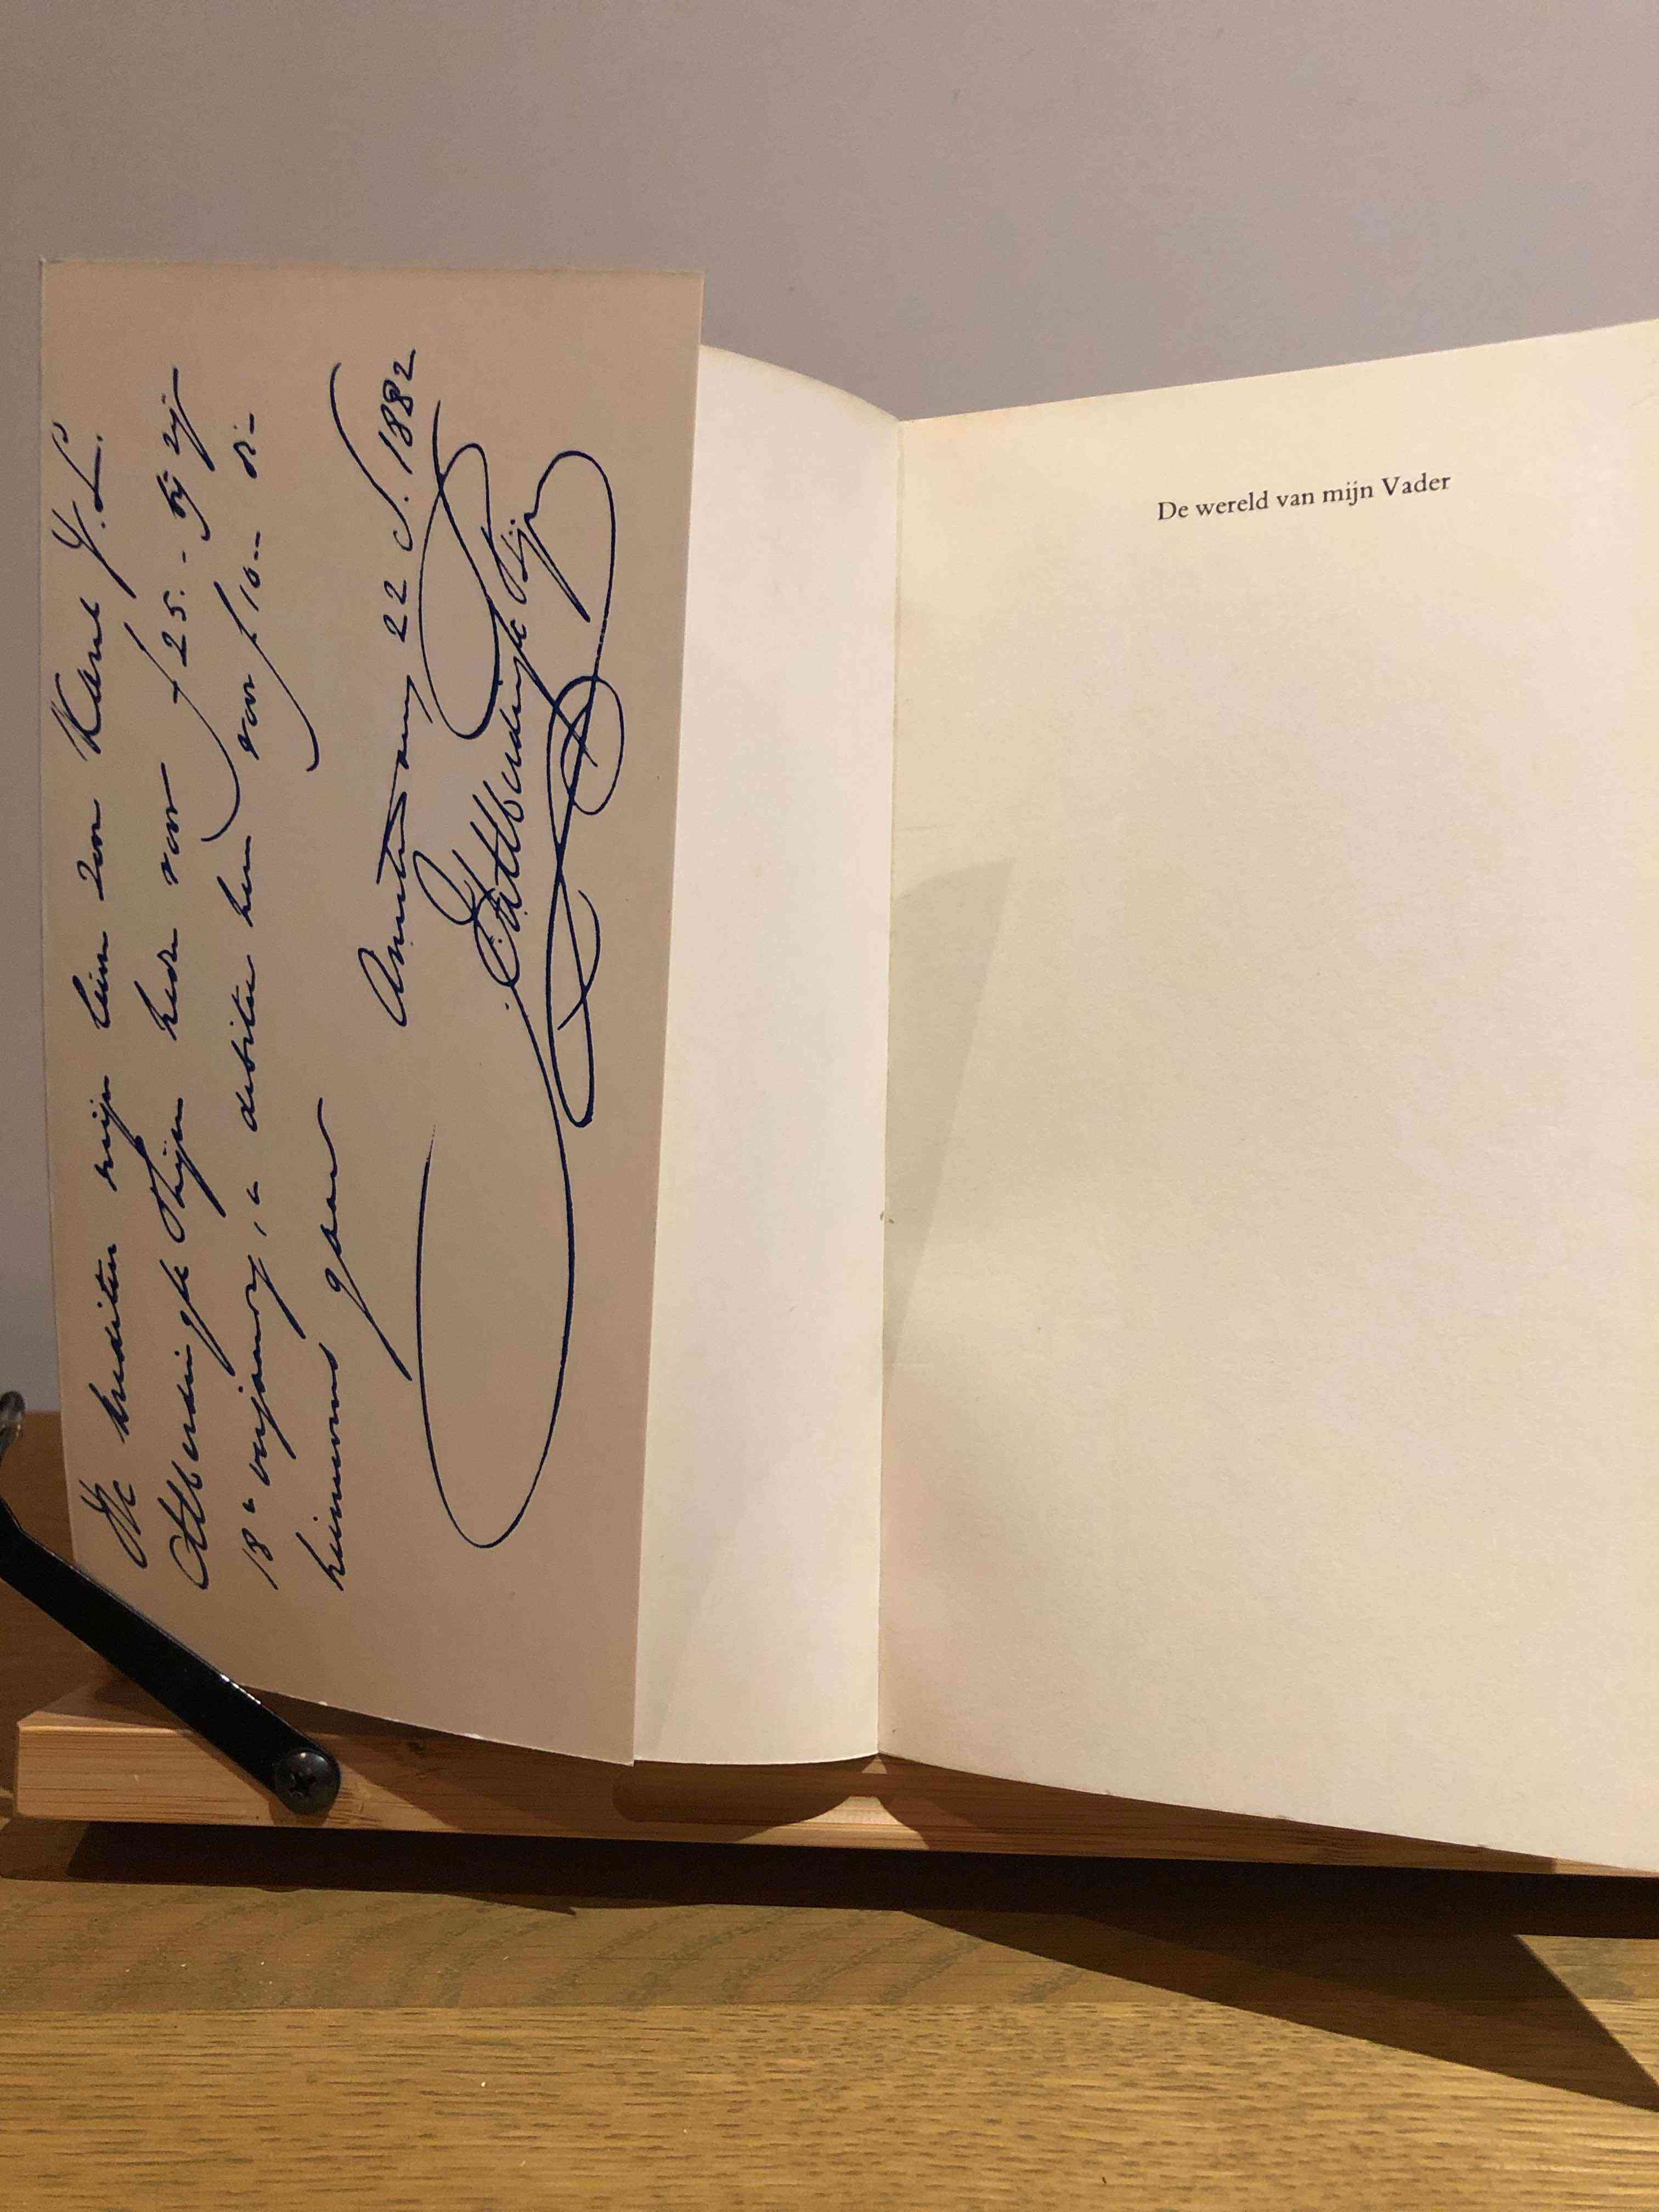 Ik krediteer mijn zoon Karel J.L.
Alberdingk Thijm heden voor f 25.- bij zijn
18e verjaring, en debiteer hem voor f 10.- die
hiernevens gaan
Amsterdam 22 S. 1882
Alberdingk Thijm
De wereld van mijn Vader